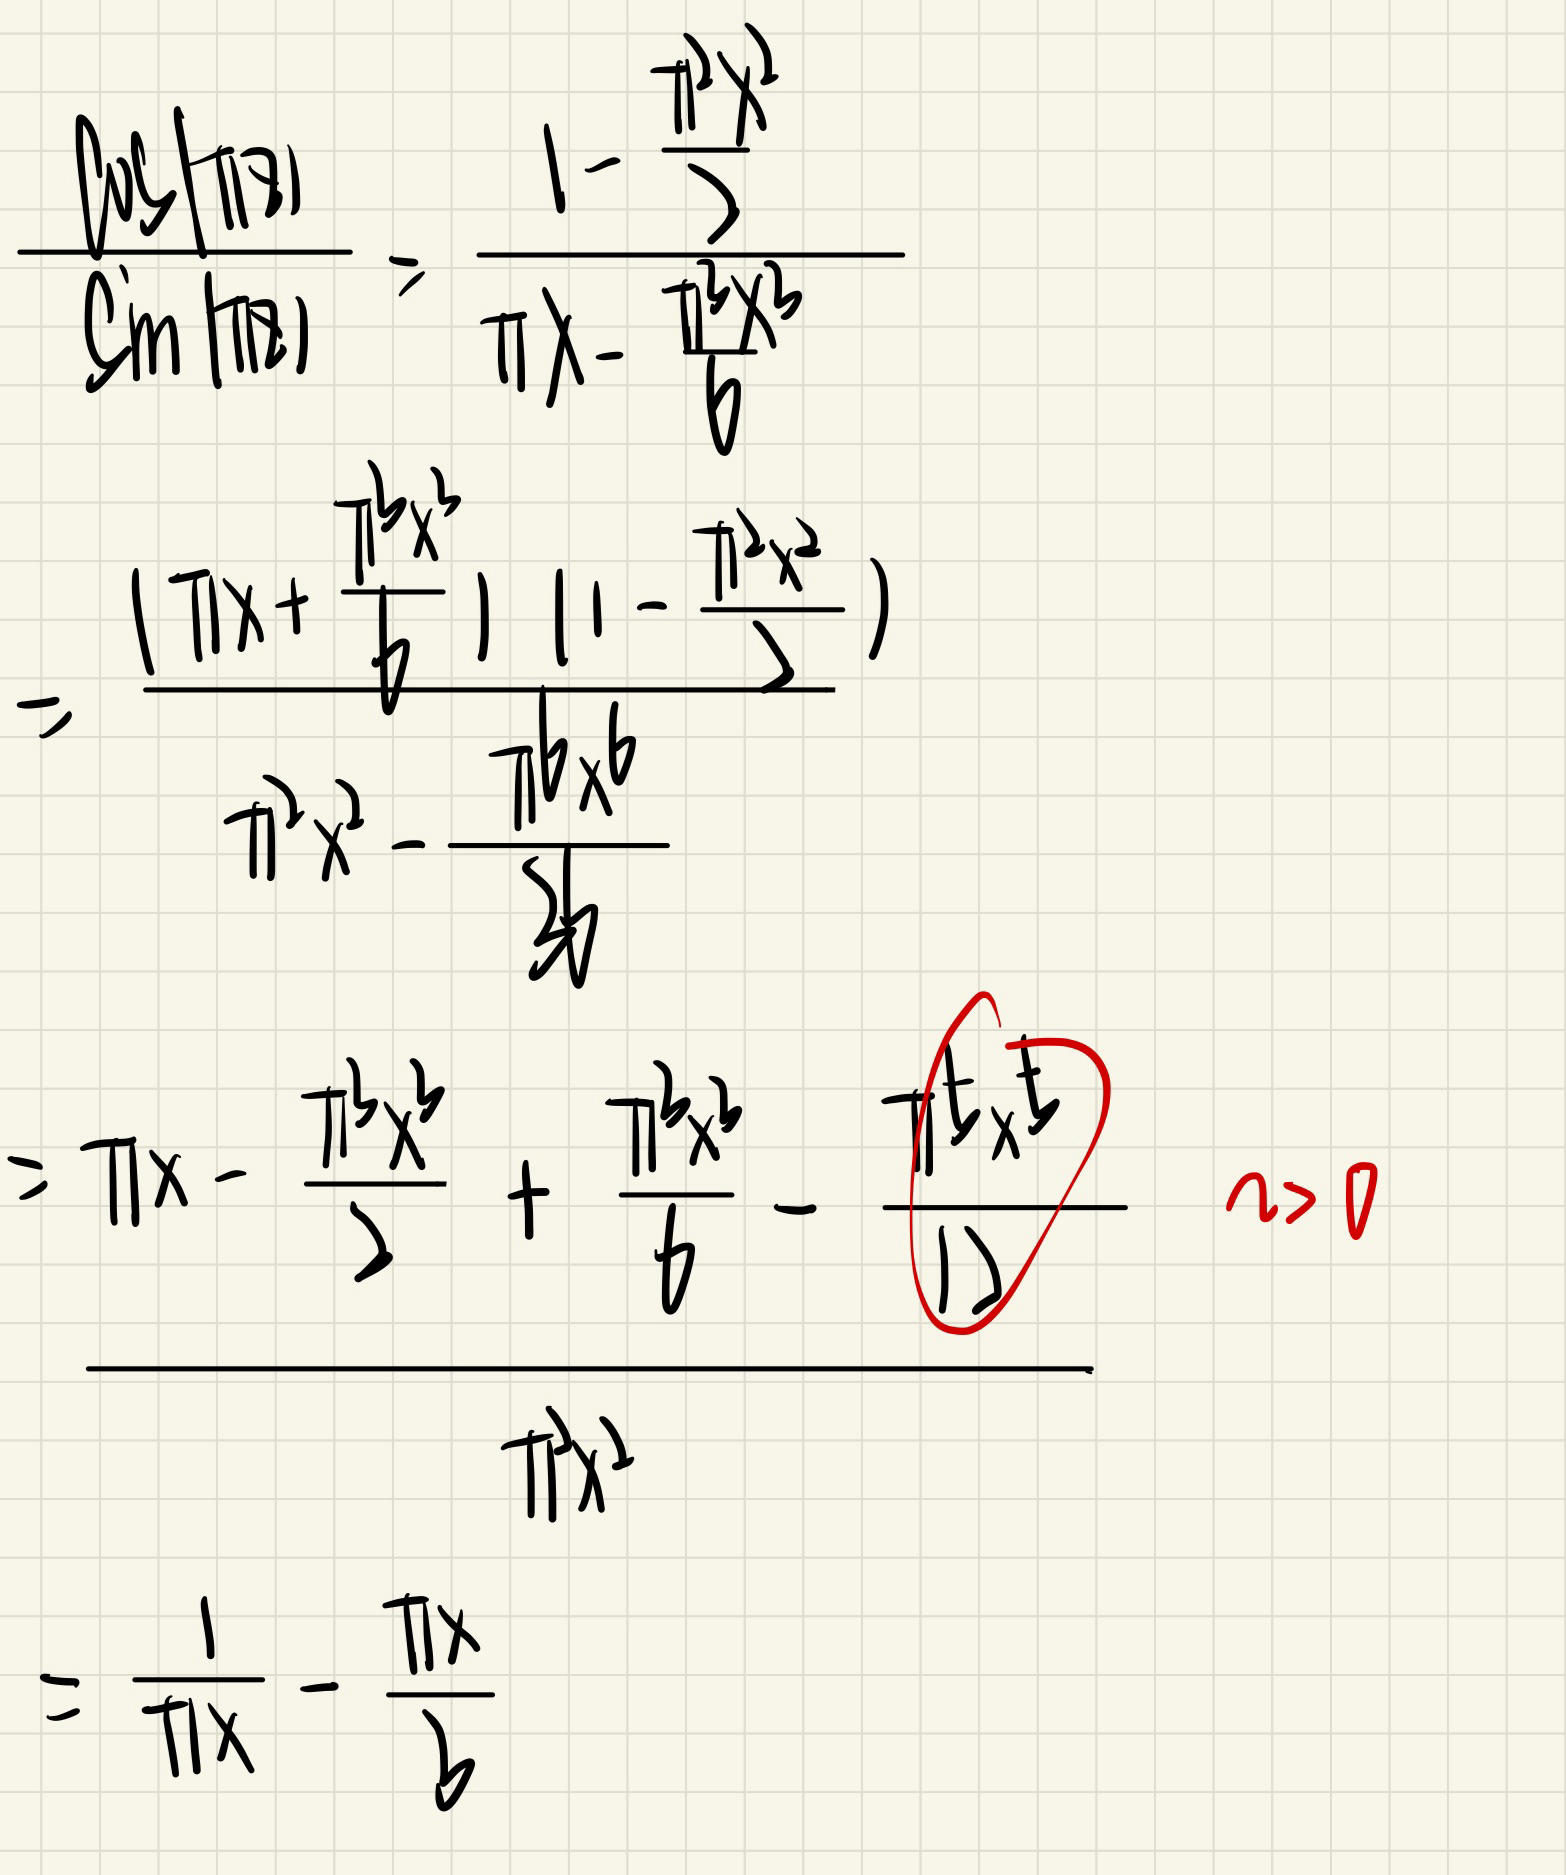 cos(πz)/sin(πz) = (1 - π²x²/2)/(πx - π³x³/6)
= (πx + π³x³/6)(1 - π²x²/2)/(π²x² - π⁶x⁶/36)
= (πx - π³x³/2 + π³x³/6 - π⁵x⁵/12)/(π²x²) n>0
= 1/πx - πx/3